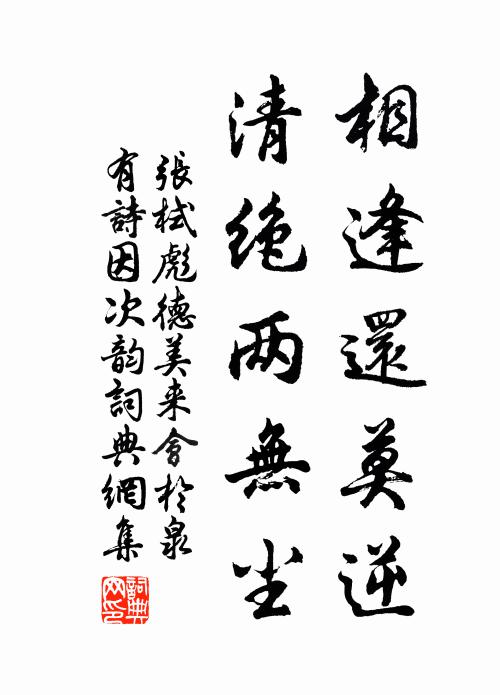 相逢還莫逆
清絶两無尘
張栻彪德美来會於泉
有詩因次韵詞典網集
詞典网印